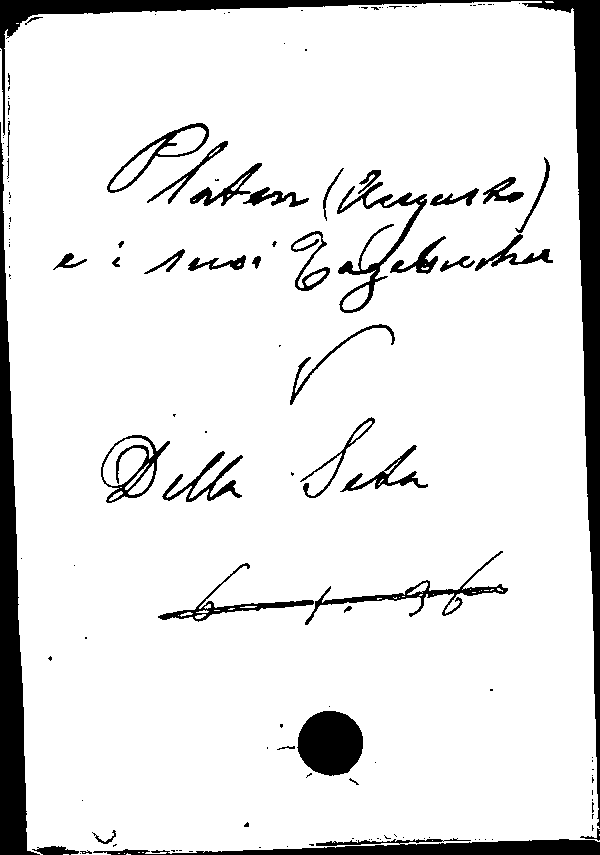 Platen (Augusto)
e i suoi Tagebücher
V
Della Seta
6. 1. 36